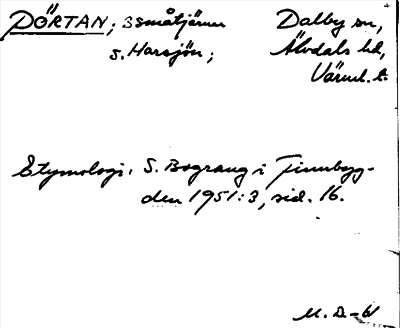 DÖRTAN; 3 småtjärnar Dalby sn,
s. Harsjön; Älvdals hd,
Värml. l.
Etymologi: S. Bograng i Finnbyg-
den 1951:3, sid. 16.
M. D.-61